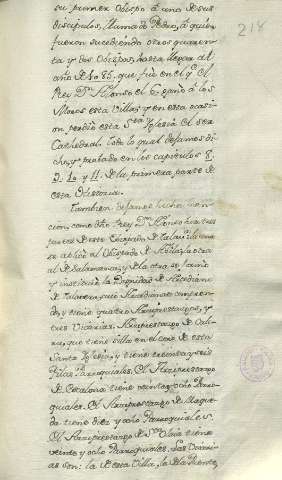 218
su primer Obispo á uno de sus
discipulos, llamado Pedro, á quien
fueron sucediendo otros quaren-
ta y dos Obispos, hasta llegar el
año de 1085. que fue en el q.e el
Rey D.n Alonso el 6.o ganó á los
Moros esta Villa; y en esta ocasi-
on, perdio esta S.ta Iglesia el ser
Cathedral. todo lo qual dejamos di-
cho, y probado en los capitulos 8.
9. 10 y 11. de la primera parte de
esta Historia.
Tambien dejamos hecha men-
cion como dho Rey D.n Alonso hizo tres
partes de este Obispado de Talavera, la una
se aplicó al Obispado de Abila, la otra
al de Salamanca, y de la otra se formó
y instituió la Dignidad de Arcediano
de Talavera, cuio Arcedianato compren-
de, y tiene quatro Arciprestazgos, y
tres Vicarias. Arciprestazgo de Tala-
vera, que tiene silla en el coro de esta
Santa Iglesia, y tiene treinta y seis
Pilas Parroquiales. El Arciprestazgo
de Escalona tiene veinte y ocho Parro-
quiales. El Arciprestazgo de Maqueda
tiene diez y ocho Parroquiales.
El Arciprestazgo de S.ta Olalla tiene
veinte y ocho Parroquiales. Las Vicarias
son: la de esta Villa, la de la Puente,